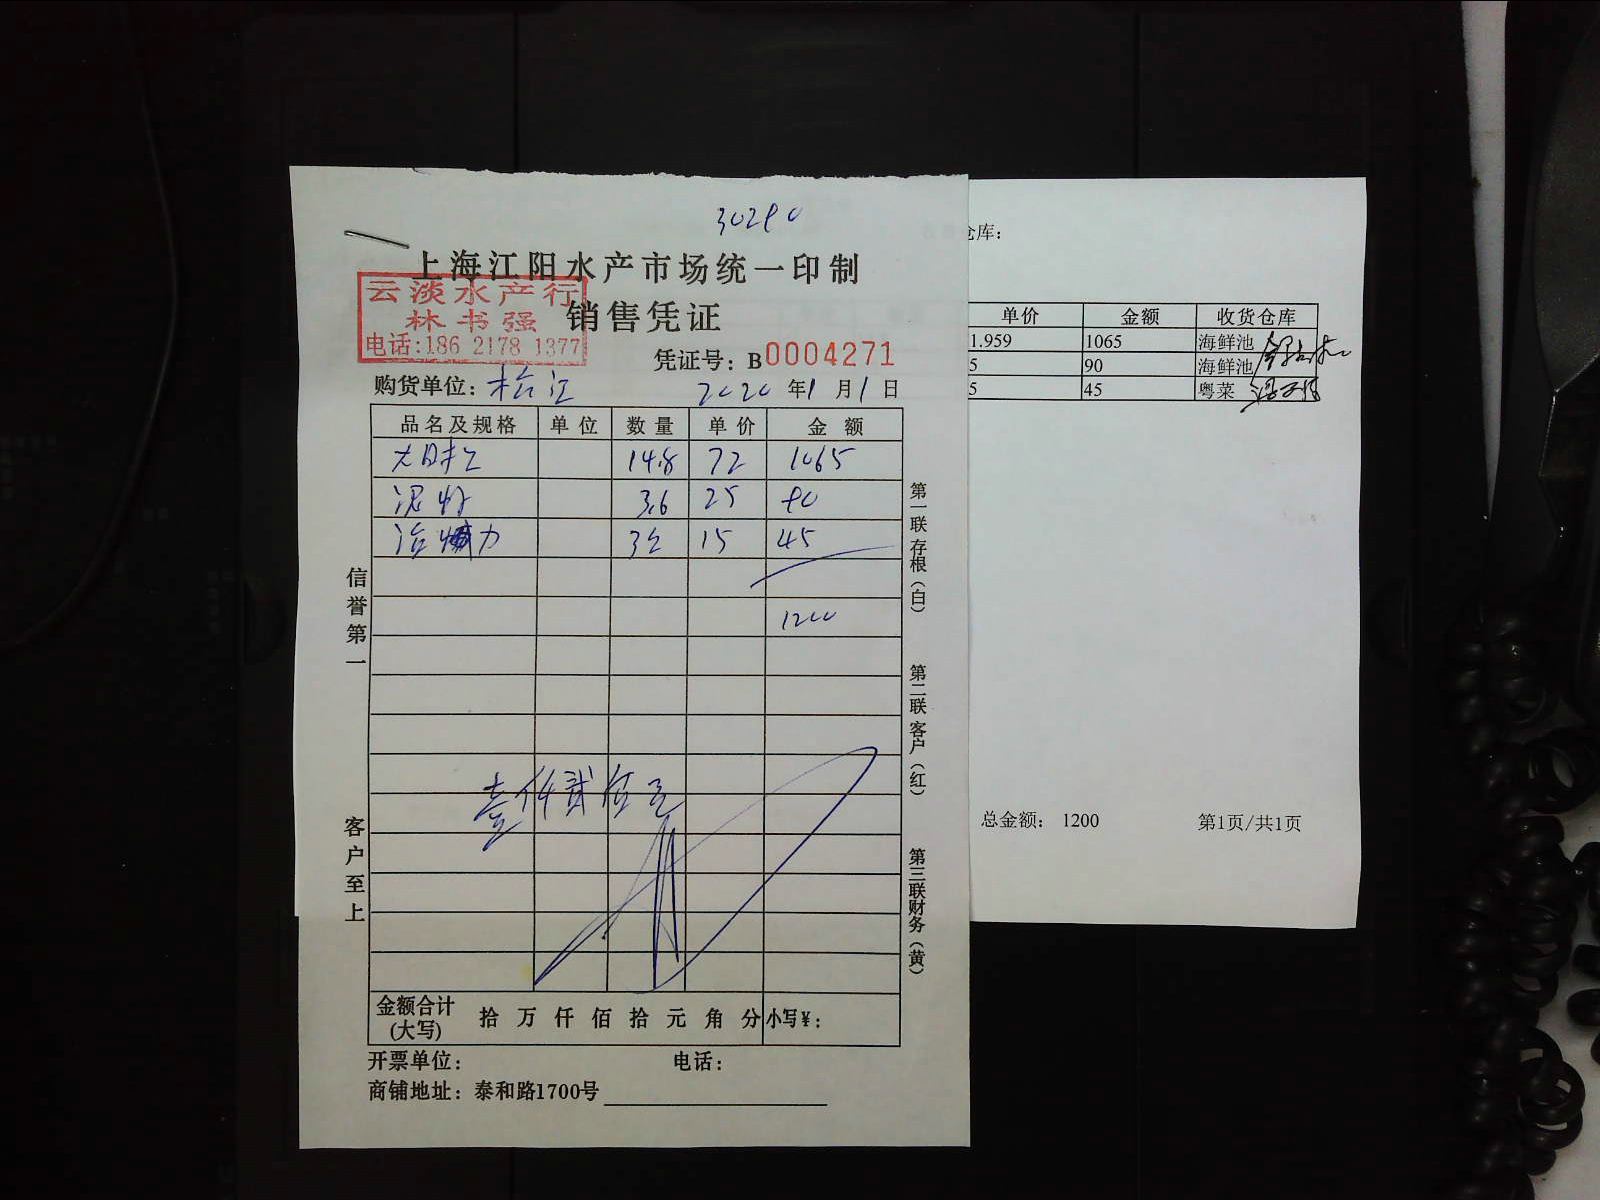 30290
上海江阳水产市场统一印制
云淡水产行
林书强
电话:186 2178 1377
销售凭证
凭证号: B0004271
购货单位: 松江
2020 年 1 月 1 日
品名及规格 单位 数量 单价 金额
14.8 72 1065
3.6 25 90
15 45
1200
壹仟贰佰元
金额合计(大写) 拾 万 仟 佰 拾 元 角 分 小写¥:
开票单位: 电话:
商铺地址: 泰和路1700号
信誉第一
客户至上
第一联存根(白)
第二联客户(红)
第三联财务(黄)
仓库:
单价 金额 收货仓库
1.959 1065 海鲜池
5 90 海鲜池
5 45 粤菜
总金额: 1200 第1页/共1页